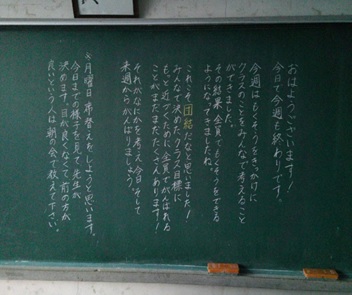 おはようございます!
今日で今週も終わりです。
今週はもくそうをきっかけに
クラスのことをみんなで考えること
ができました。
その結果、全員でもくそうをできる
ようになってきましたね。
これこそ団結だなと思いました!
みんなで決めたクラス目標に
もっと近づくために、全員でがんばれる
ことがまだまだたくさんあります!
それがなにかを考え、今日、そして
来週からがんばりましょう。
※月曜日席替えをしようと思います。
今日までの様子を見て、先生が
決めます。目が良くなくて、前の方が
良いという人は朝の会で教えて下さい。